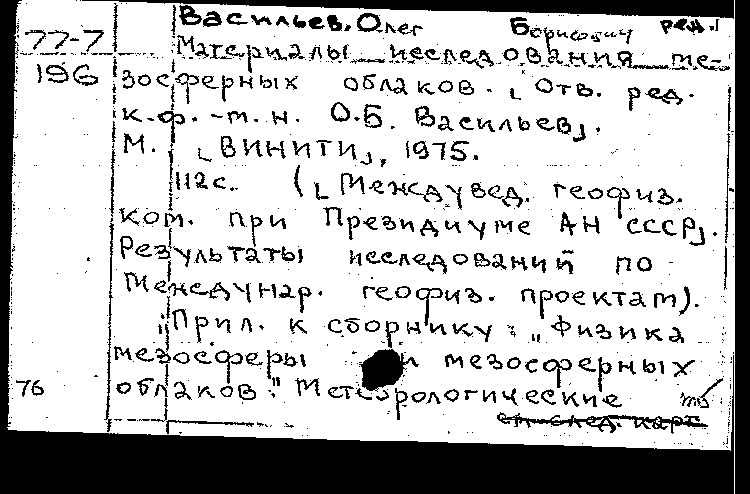 Васильев, Олег Борисович ред.
77-7 Материалы исследования ме-
196 зосферных облаков. [Отв. ред.
к.ф.-м.н. О.Б. Васильев].
М. [ВИНИТИ], 1975.
112с. ([Междувед. геофиз.
ком. при Президиуме АН СССР].
Результаты исследований по
Междунар. геофиз. проектам).
"Прил. к сборнику: "Физика
мезосферы и мезосферных
76 облаков". Метеорологические
см. след. карт.